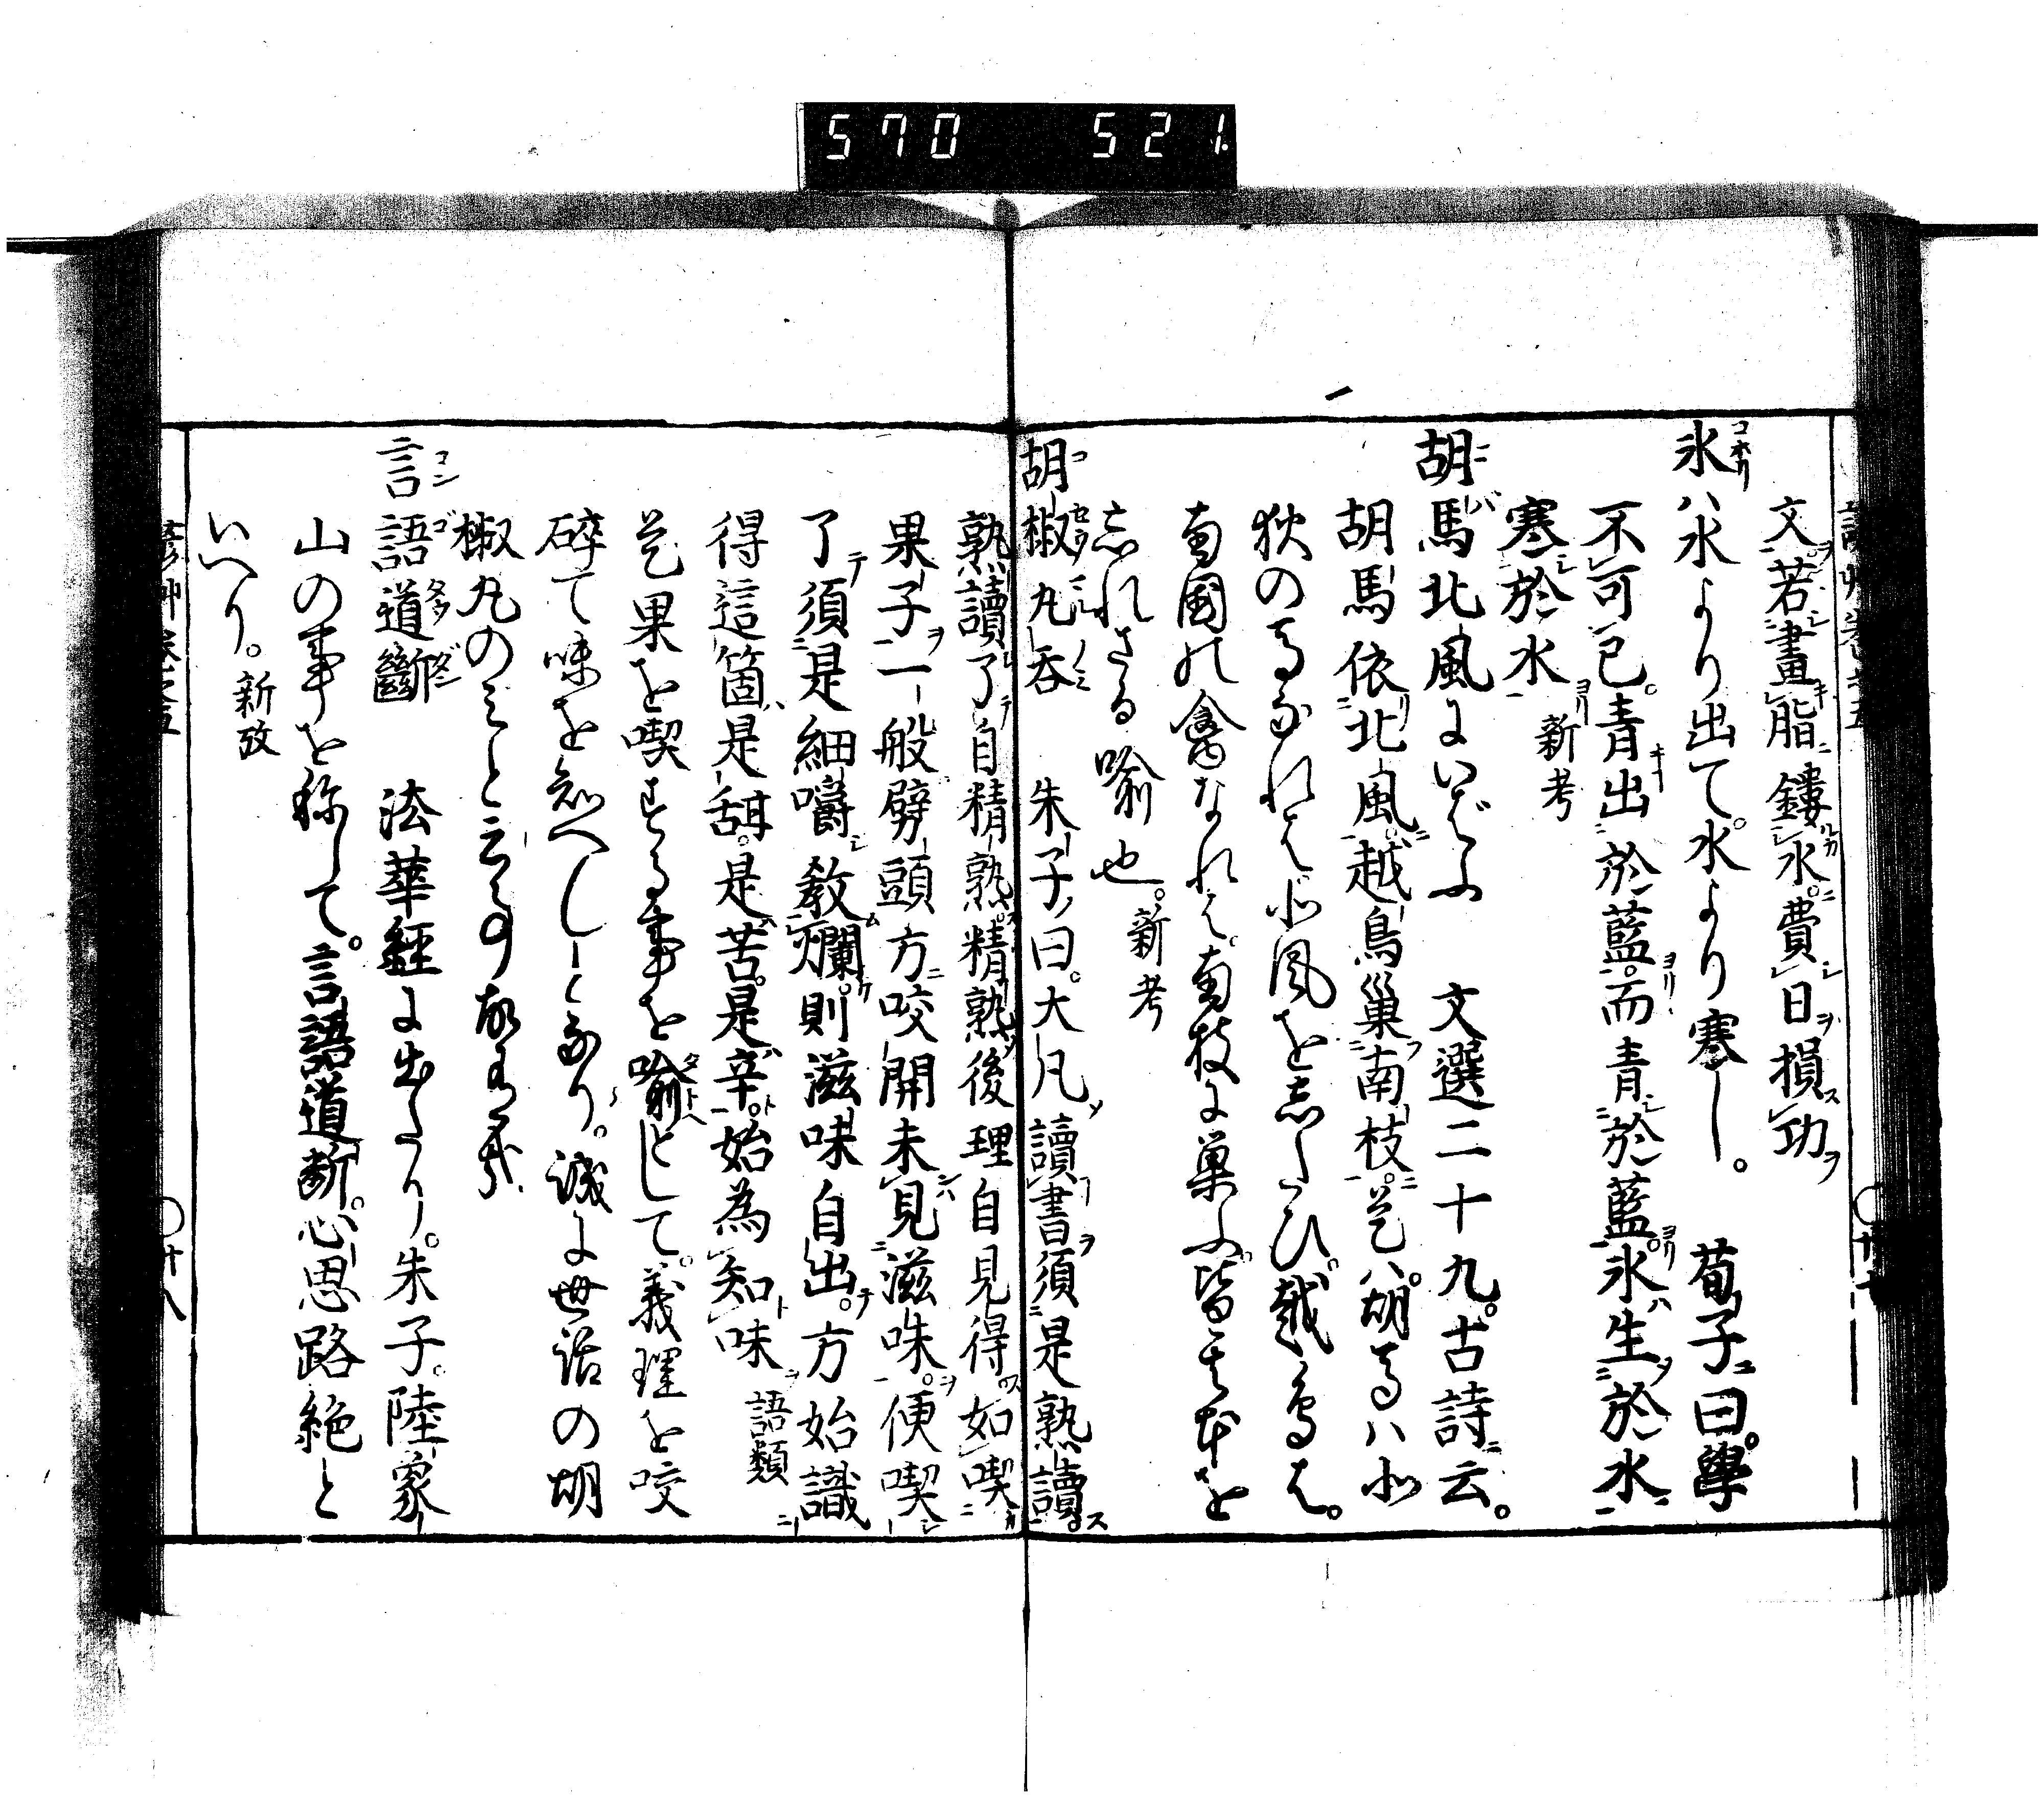 570 521.
文若畫脂鏤氷。費日損功
氷ハ水より出て。水より寒し。 荀子曰。學
不可已。青出於藍。而青於藍。氷生於水
寒於水 新考
胡馬北風にいばふ 文選二十九。古詩云。
胡馬依北風。越鳥巢南枝。是ハ。胡馬ハ北
狄の馬なれは北風を志たひ。越鳥は。
南國の禽なれは。南枝に巢ふ。皆其本を
忘れさる喻也。新考
胡椒丸呑 朱子曰。大凡讀書須是熟讀。
熟讀了自精熟。精熟後理自見得。如喫
果子一般。劈頭方咬開未見滋味。便喫
了。須是細嚼敎爛。則滋味自出。方始識
得這箇是甜。是苦。是辛。始為知味 語類
是果を喫する事を喻として。義理を咬
碎て味を知へしとなり。誠に世話の胡
椒丸のみと云る事有る哉
言語道斷 法華經に出たり。朱子。陸象
山の事を称して。言語道断。心思路絶と
いへり。新攷